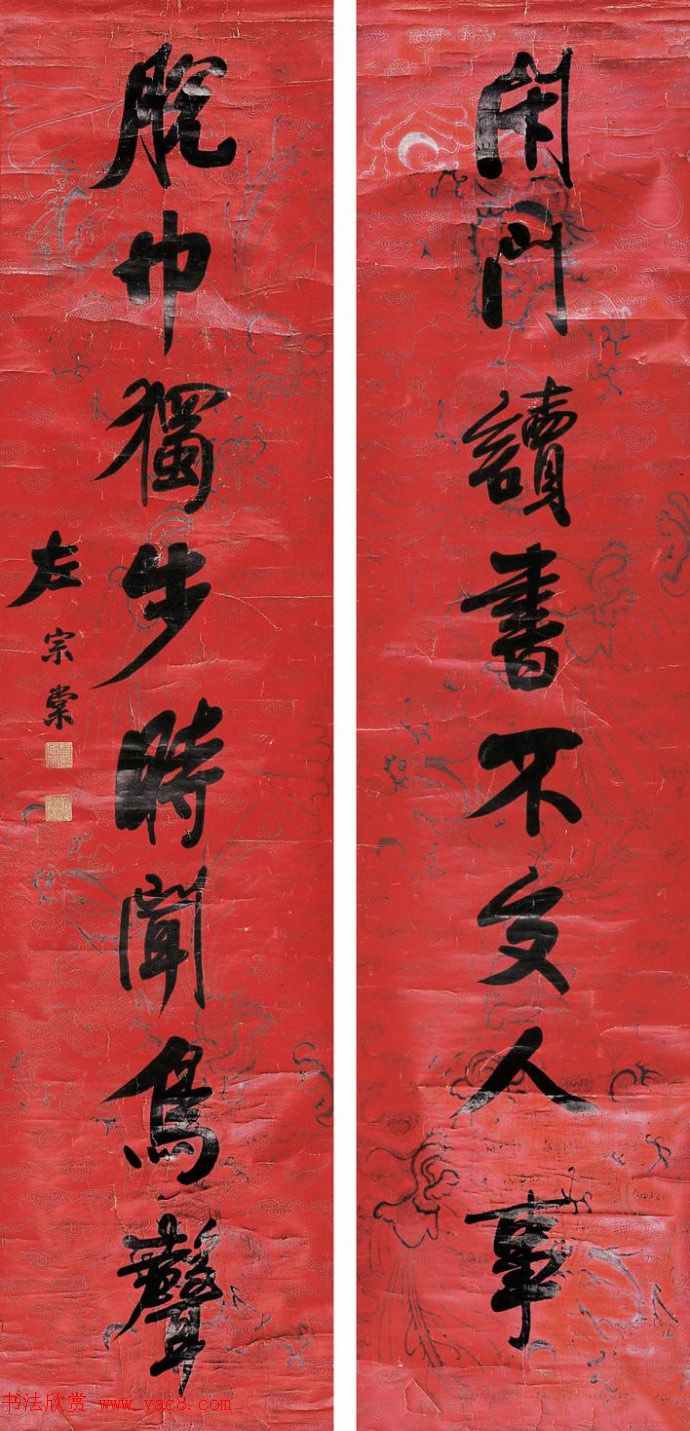 閉門讀書不交人事
脫巾獨步時聞鳥聲
左宗棠
书法欣赏 www.yac8.com